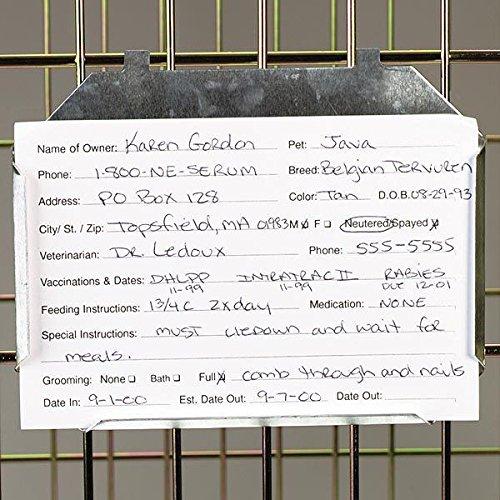 Name of Owner: Karen Gordon Pet: Java
Phone: 1-800-NE-SERUM Breed: Belgian Tervuren
Address: PO Box 128 Color: Tan D.O.B: 08-29-93
City/ St. / Zip: Topsfield, MA 01983 M F Neutered/Spayed
Veterinarian: Dr. Ledoux Phone: 555-5555
Vaccinations & Dates: DHLPP 11-99 INTRATRAC II 11-99 RABIES DUE 12-01
Feeding Instructions: 1 3/4 C 2x day Medication: NONE
Special Instructions: must liedown and wait for
meals.
Grooming: None Bath Full comb through and nails
Date In: 9-1-00 Est. Date Out: 9-7-00 Date Out: